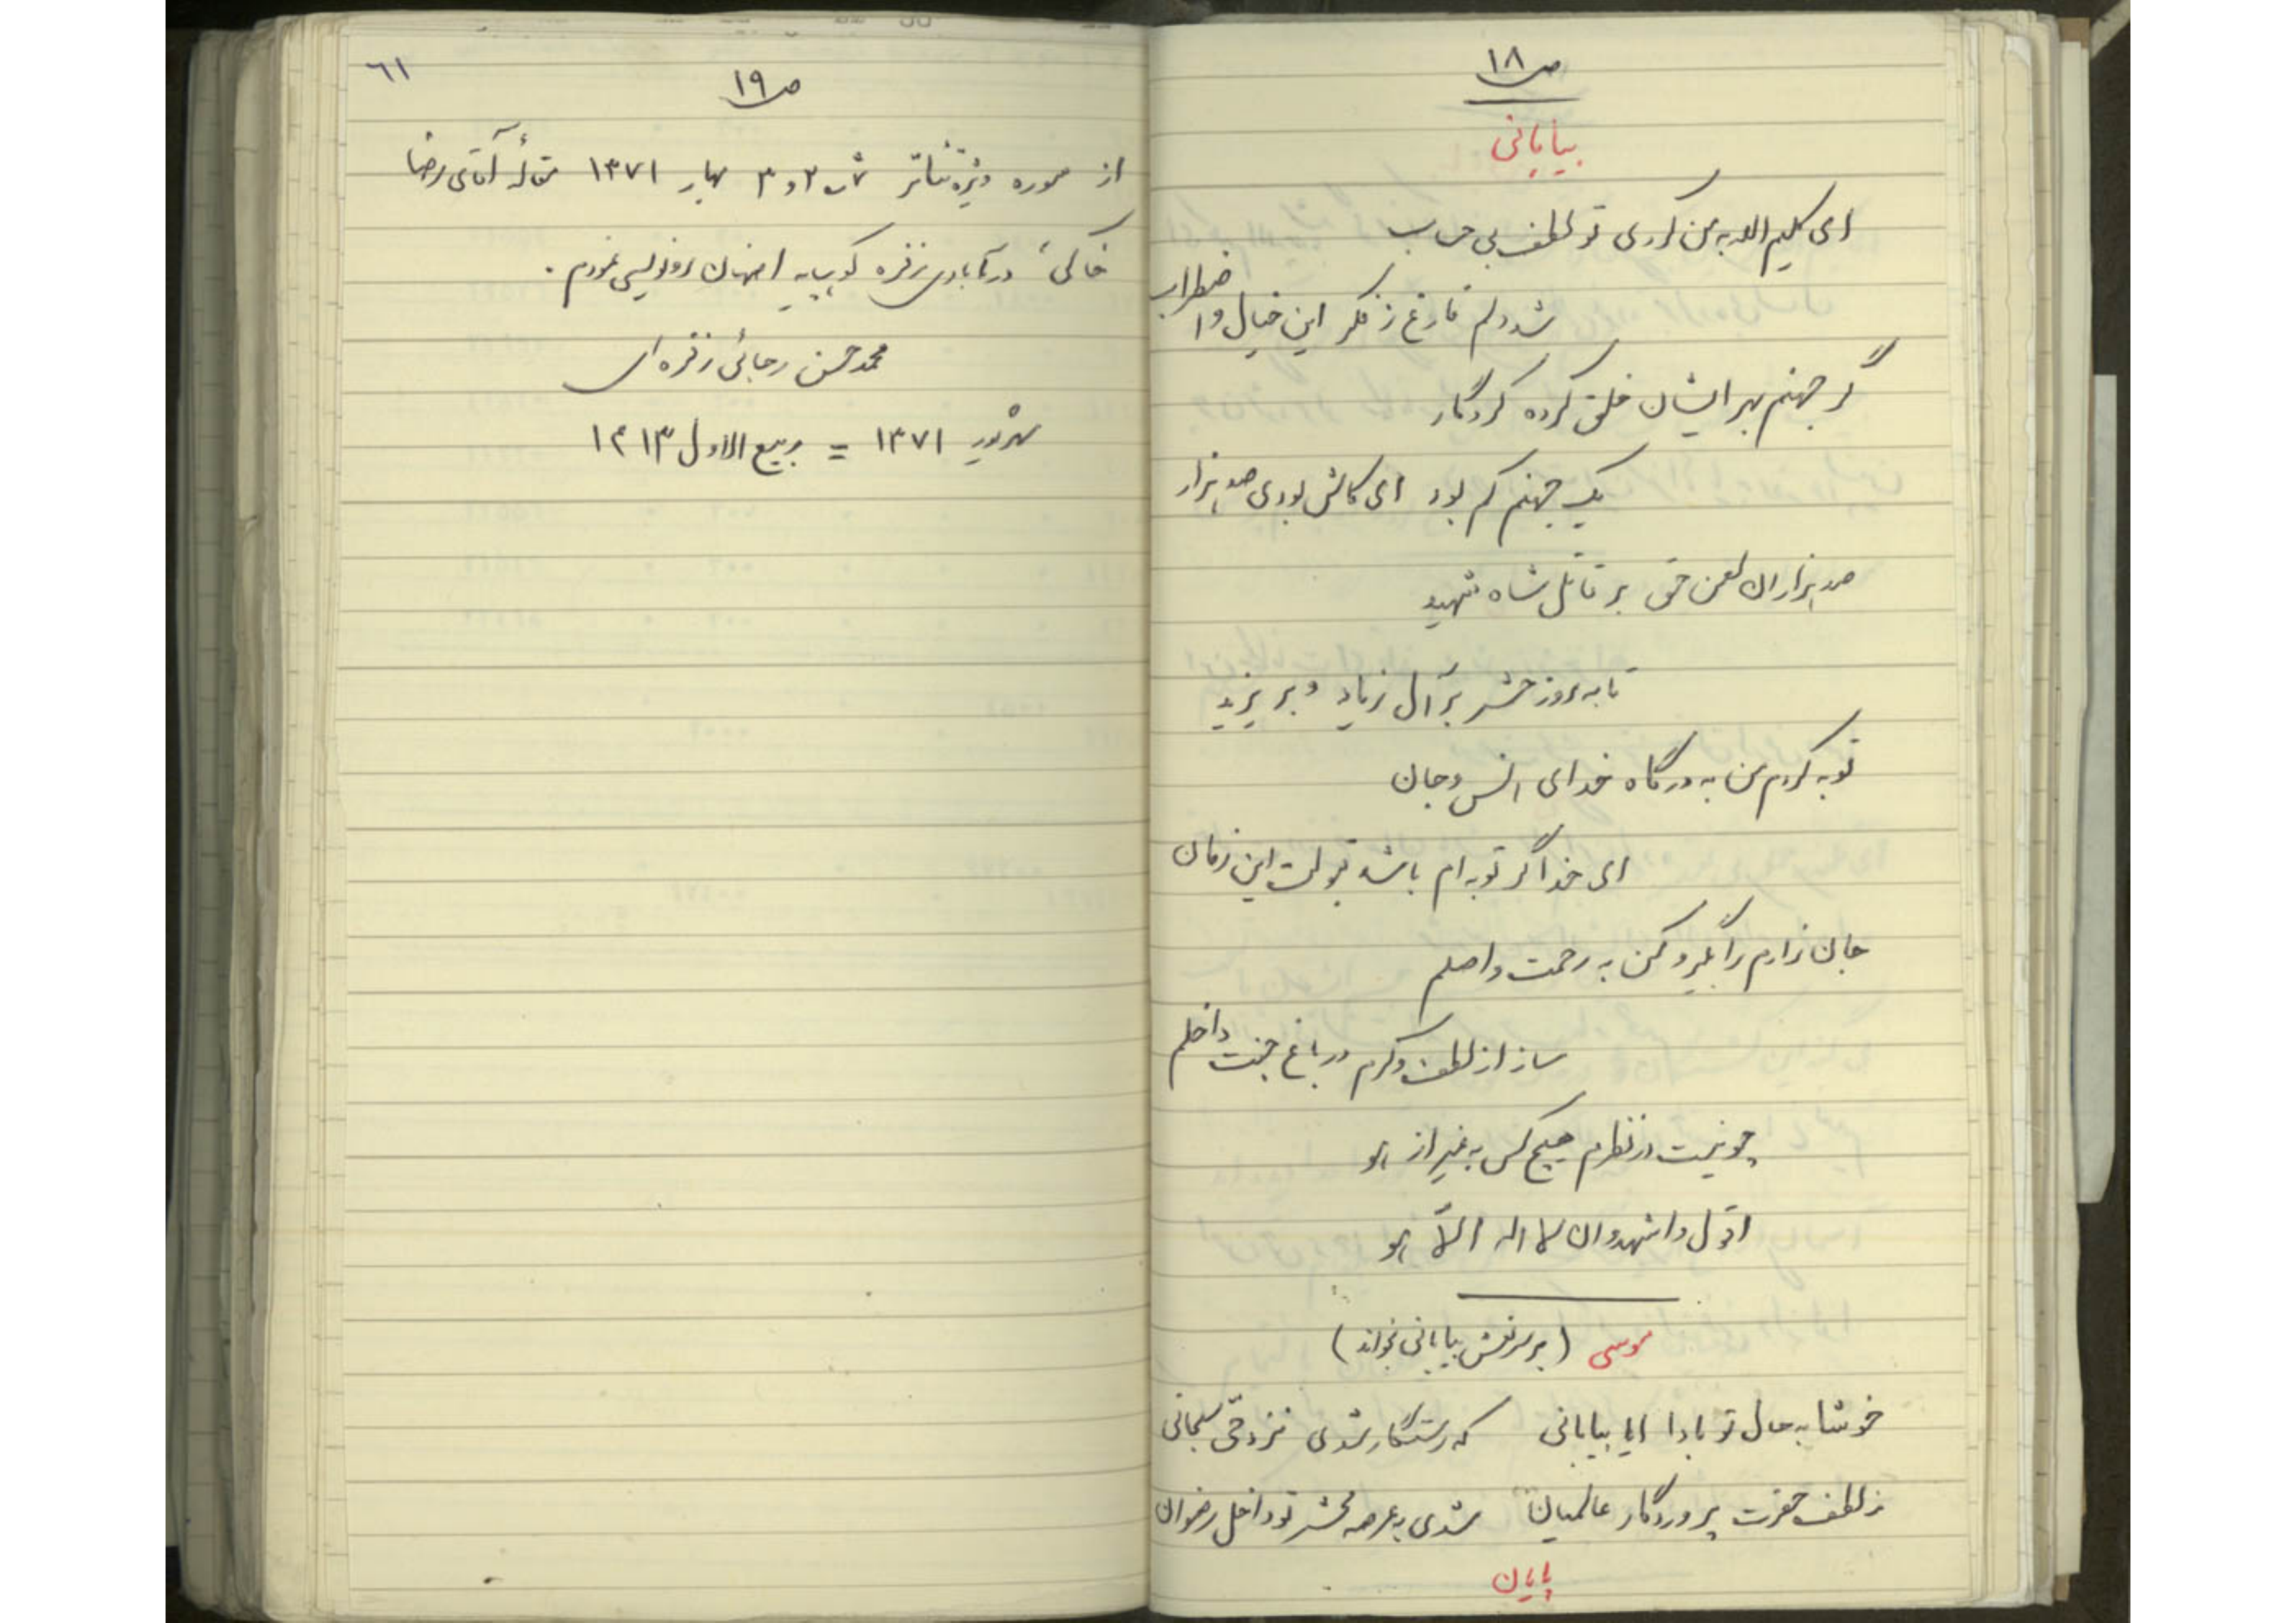 ص ١٨
بیابانی
ای کلیم الله به من کردی تو لطف بی حساب
شد دلم فارغ ز فکر این خیال و اضطراب
گر جهنم بهر ایشان خلق کرده کردگار
یک جهنم کم بود ای کاش بودی صد هزار
صد هزاران لعن حق بر قاتل شاه شهید
تا به روز حشر بر آل زیاد و بر یزید
توبه کردم من به درگاه خدای انس و جان
ای خدا گر توبه ام باشد قبولت این زمان
جان زارم را بگیر و کن به رحمت واصلم
ساز از لطف و کرم در باغ جنت داخلم
چو نیست در نظرم هیچ کس به غیر از هو
اقول و اشهد و ان لا اله الّا هو
موسی (بر سر نعش بیابانی بخواند)
خوشا به حال تو بادا ایا بیابانی که رستگار شدی نزد حیّ سبحانی
ز لطف حضرت پروردگار عالمیان شدی به عرصه محشر تو داخل رضوان
پایان
٦١
ص ١٩
از ویژه تئاتر ش ٢ و ٣ بهار ١٣٧١ مقالهٔ آقای رضا
خاکی در آبادی زفره کوهپایه اصفهان رونویسی نمودم.
محمد حسن رجائی زفره ای
شهریور ١٣٧١ = ربیع الاول ١٤١٣